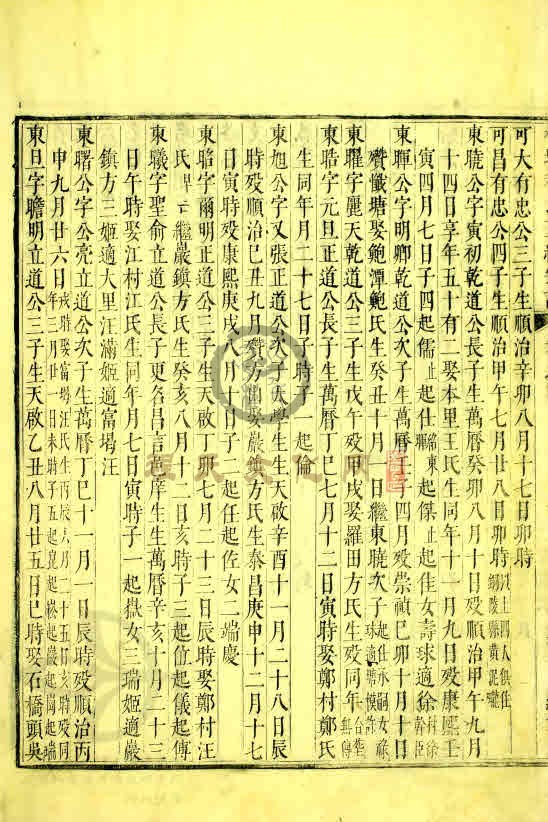 可大有忠公三子生順治辛卯八月十七日卯時
可昌有忠公四子生順治甲午七月廿八日卯時
東曉公字寅初乾道公長子生萬曆癸卯八月十日歿順治甲午九月
十四日享年五十有二娶本里王氏生同年十一月九日歿康熙壬
寅四月七日子四起儒 起 東起保 起佳女壽球適徐
東暉公字明卿乾道公次子生萬曆壬子四月歿崇禎己卯十月十日
殯懺塘娶鮑潭鮑氏生癸丑十月一日繼東曉次子起仕
東曜字麗天乾道公三子生戊午歿甲戌娶羅田方氏生歿同年
東晧字元旦正道公長子生萬曆丁巳七月十二日寅時娶鄭村鄭氏
生同年月二十七日子時子一起倫
東旭公字又張正道公次子太學生生天啟辛酉十一月二十八日辰
時歿順治己丑九月殯方 娶巖 方氏生泰昌庚申十二月十七
日寅時歿康熙庚戌八月十日子二起任起佐女一端慶
東晗字爾明正道公三子生天啟丁卯七月二十三日辰時娶鄭村汪
氏 繼巖鎮方氏生癸亥八月十二日亥時子三起 起儀起傳
東曦字聖俞立道公長子更名昌言 庠生生萬曆辛亥十月二十三
日午時娶江村江氏生同年月七日寅時子一起嶽女三瑞姬適巖
鎮方三姬適大里汪滿姬適富堨汪
東曙公字公亮立道公次子生萬曆丁巳十一月一日辰時歿順治丙
申九月廿六日戌時娶富堨汪氏生丙辰六月二十五日亥時歿同年三月廿一日未時子五起 起 起巖起 起
東旦字瞻明立道公三子生天啟乙丑八月廿五日巳時娶石橋頭吳